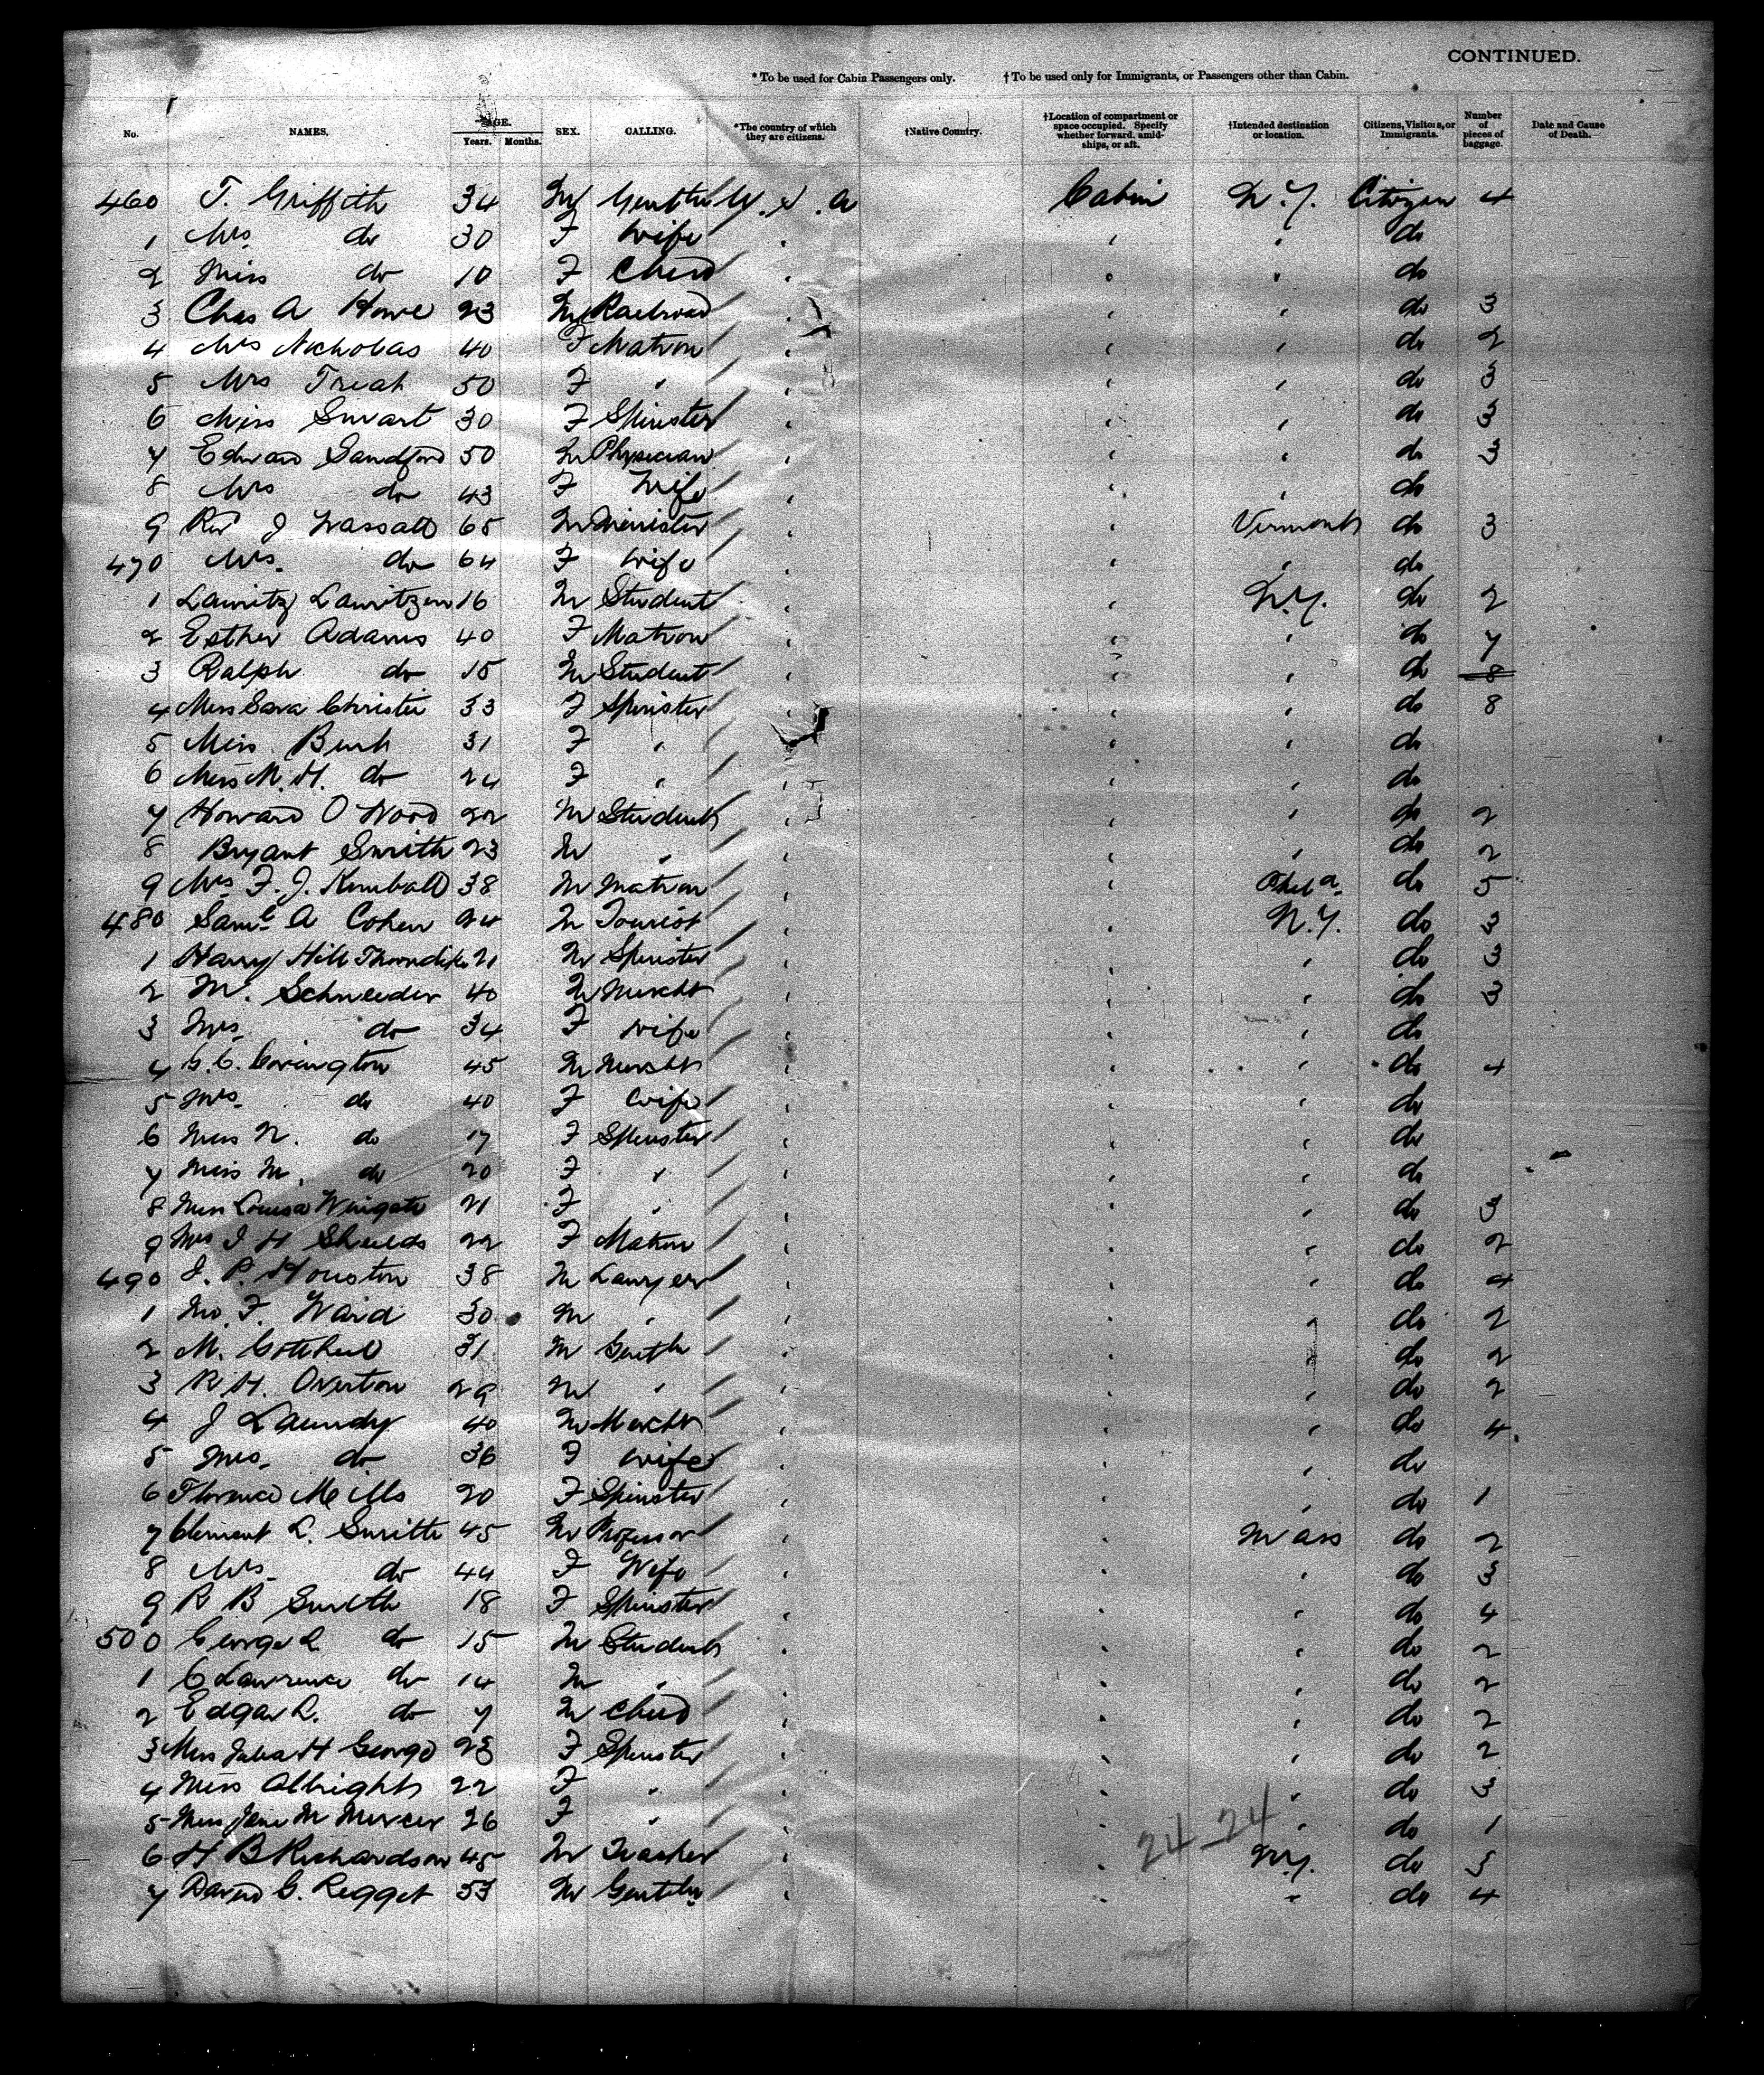 CONTINUED.
* To be used for Cabin Passengers only. † To be used only for Immigrants, or Passengers other than Cabin.
No. NAMES. AGE. Years. Months. SEX. CALLING. *The country of which they are citizens. †Native Country. †Location of compartment or space occupied. Specify whether forward, amidships, or aft. †Intended destination or location. Citizens, Visitors, or Immigrants. Number of pieces of baggage. Date and Cause of Death.
460 T. Griffith 34 M Gentln U.S.A Cabin N.Y. Citizen 4
1 Mrs do 30 F Wife " " " do
2 Miss do 10 F Child " " " do
3 Chas A Howe 23 M Railroad " " " do 3
4 Mrs Nicholas 40 F Matron " " " do 2
5 Mrs Treat 50 F " " " " do 3
6 Miss Swart 30 F Spinster " " " do 3
7 Edward Sandford 50 M Physician " " " do 3
8 Mrs do 43 F Wife " " " do
9 Rev J Wassall 65 M Minister " " Vermont do 3
470 Mrs. do 64 F Wife " " " do
1 Lauritz Lauritzen 16 M Student " " N.Y. do 2
2 Esther Adams 40 F Matron " " " do 7
3 Ralph do 15 M Student " " " do 8
4 Miss Sara Christie 33 F Spinster " " " do 8
5 Miss 31 F " " " " do
6 Miss M. H. do 24 F " " " " do
7 Howard O Wood 22 M Student " " " do 2
8 Bryant Smith 23 M " " " " do 2
9 Mrs F. J. Kimball 38 M Matron " " Phila. do 5
480 Saml A Cohen 24 M Tourist " " N.Y. do 3
1 Harry Hill Thorndike 21 M Spinster " " " do 3
2 M. Schneider 40 M Mercht " " " do 3
3 Mrs. do 34 F Wife " " " do
4 Covington 45 M Mercht " " " do 4
5 Mrs. do 40 F Wife " " " do
6 Miss N. do 17 F Spinster " " " do
7 Miss M. do 20 F " " " " do
8 Miss Louisa Wingate 21 F " " " " do 3
9 Mrs J H Shields 22 F Matron " " " do 2
490 J. P. Houston 38 M Lawyer " " " do 4
1 F. Ward 30 M " " " " do 2
2 M. 31 M Gentln " " " do 2
3 R H. Overton 29 M " " " " do 2
4 J Laundy 40 M Mercht " " " do 4
5 Mrs. do 36 F Wife " " " do
6 Florence Mills 20 F Spinster " " " do 1
7 Clement L. Smith 45 M Professor " " Mass do 2
8 Mrs. do 44 F Wife " " " do 3
9 R B Smith 18 F Spinster " " " do 4
500 George L do 15 M Student " " " do 2
1 C Lawrence do 14 M " " " " do 2
2 Edgar L. do 7 M Child " " " do 2
3 Miss Julia H George 28 F Spinster " " " do 2
4 Miss Albright 22 F " " " " do 3
5 Miss Jane M Mercer 26 F " " " " do 1
24-24
6 H B Richardson 45 M Teacher " " N.Y. do 3
7 David G. Legget 53 M Gentln " " " do 4